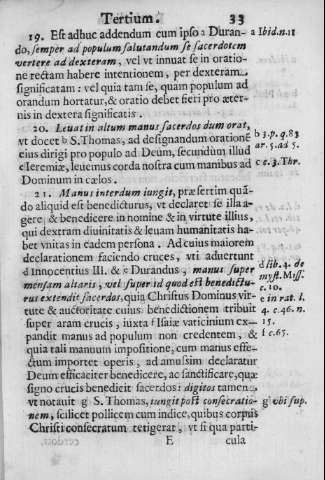 Tertium. 33
19. Est adhuc addendum cum ipso a Duran- a Ibid.n.11
do, semper ad populum salutandum se sacerdotem
vertere ad dexteram, vel vt innuat se in oratio-
ne rectam habere intentionem, per dexteram
significatam: vel quia tam se, quam populum ad
orandum hortatur, & oratio debet fieri pro æter-
nis in dextera significatis.
20. Leuat in altum manus sacerdos dum orat,
vt docet b S. Thomas, ad designandum orationē b 3.p.q.83
eius dirigi pro populo ad Deum, secundùm illud ar.5.ad 5.
c Ieremiæ, leuemus corda nostra cum manibus ad c c.3.Thr.
Dominum in cælos.
21. Manus interdum iungit, præsertim quā-
do aliquid est benedicturus, vt declaret se illa a-
gere, & benedicere in nomine & in virtute illius,
qui dextram diuinitatis & leuam humanitatis ha-
bet vnitas in eadem persona. Ad cuius maiorem
declarationem faciendo cruces, vti aduertunt
d Innocentius III. & e Durandus, manus super d lib. 4. de
mensam altaris, vel super id quod est benedictu- myst. Miss.
rus extendit sacerdos, quia Christus Dominus vir- c.10.
tute & auctoritate cuius benedictionem tribuit e in rat. l.
super aram crucis, iuxta f Isaiæ vaticinium ex- 4. c.46. n.
pandit manus ad populum non credentem, & 15.
quia tali manuum impositione, cum manus effe- f c.65.
ctum importet operis, ad amussim declaratur
Deum efficaciter benedicere, ac sanctificare, quæ
signo crucis benedicit sacerdos: digitos tamen
vt notauit g S. Thomas, iungit post consecratio- g vbi sup.
nem, scilicet pollicem cum indice, quibus corpus
Christi consecratum tetigerat, vt si qua parti-
E cula